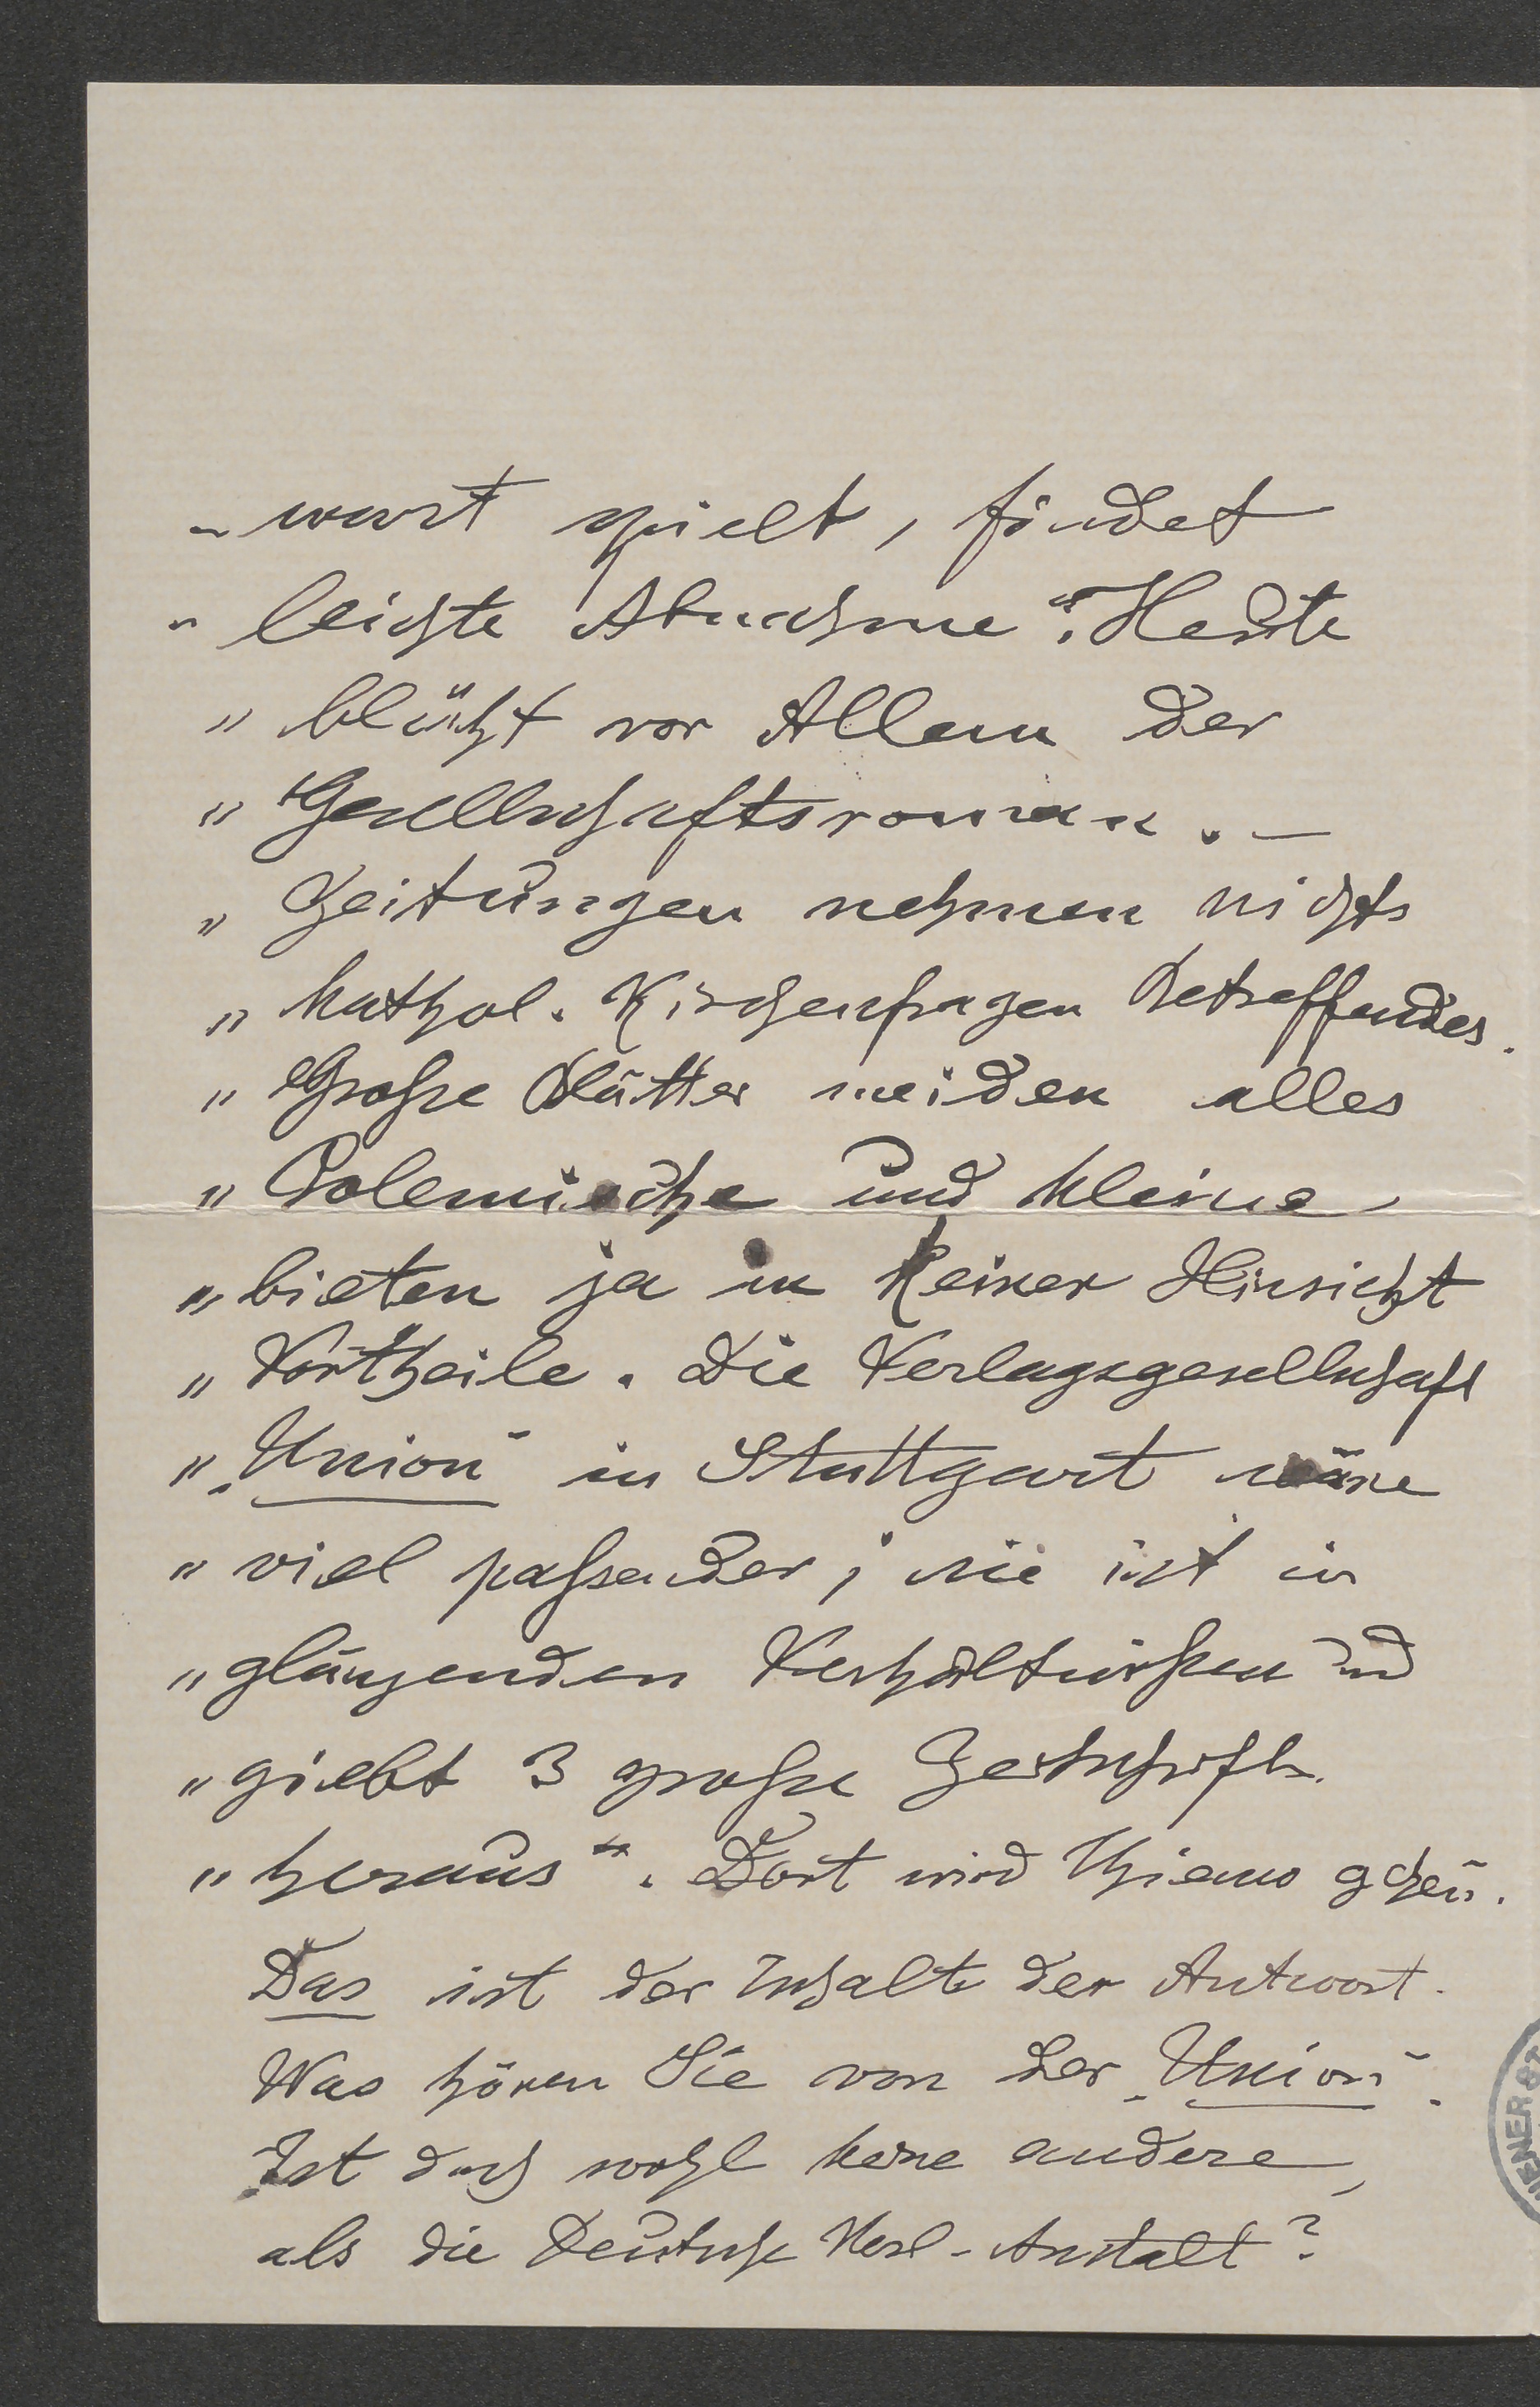 „wart spielt, findet
„leichte Abnahme“. Heute
„blüht vor Allem der
„Gesellschaftsroman. –
„Zeitungen nehmen nichts
„kathol. Kirchenfragen Betreffendes.
„Große Blätter meiden alles
„Polemische und kleine
„bieten ja in keiner Hinsicht
„Vortheile. Die Verlagsgesellschaft
„„Union“ in Stuttgart wäre
„viel paßender; sie ist in
„glänzenden Verhältnißen und
„giebt 3 große Zeitschrift.
„heraus“. Dort wird
Das ist der Inhalt der Antwort.
Was hören Sie von der „Union“.
Ist doch wohl keine andere,
als die Deutsche Verl-Anstalt?